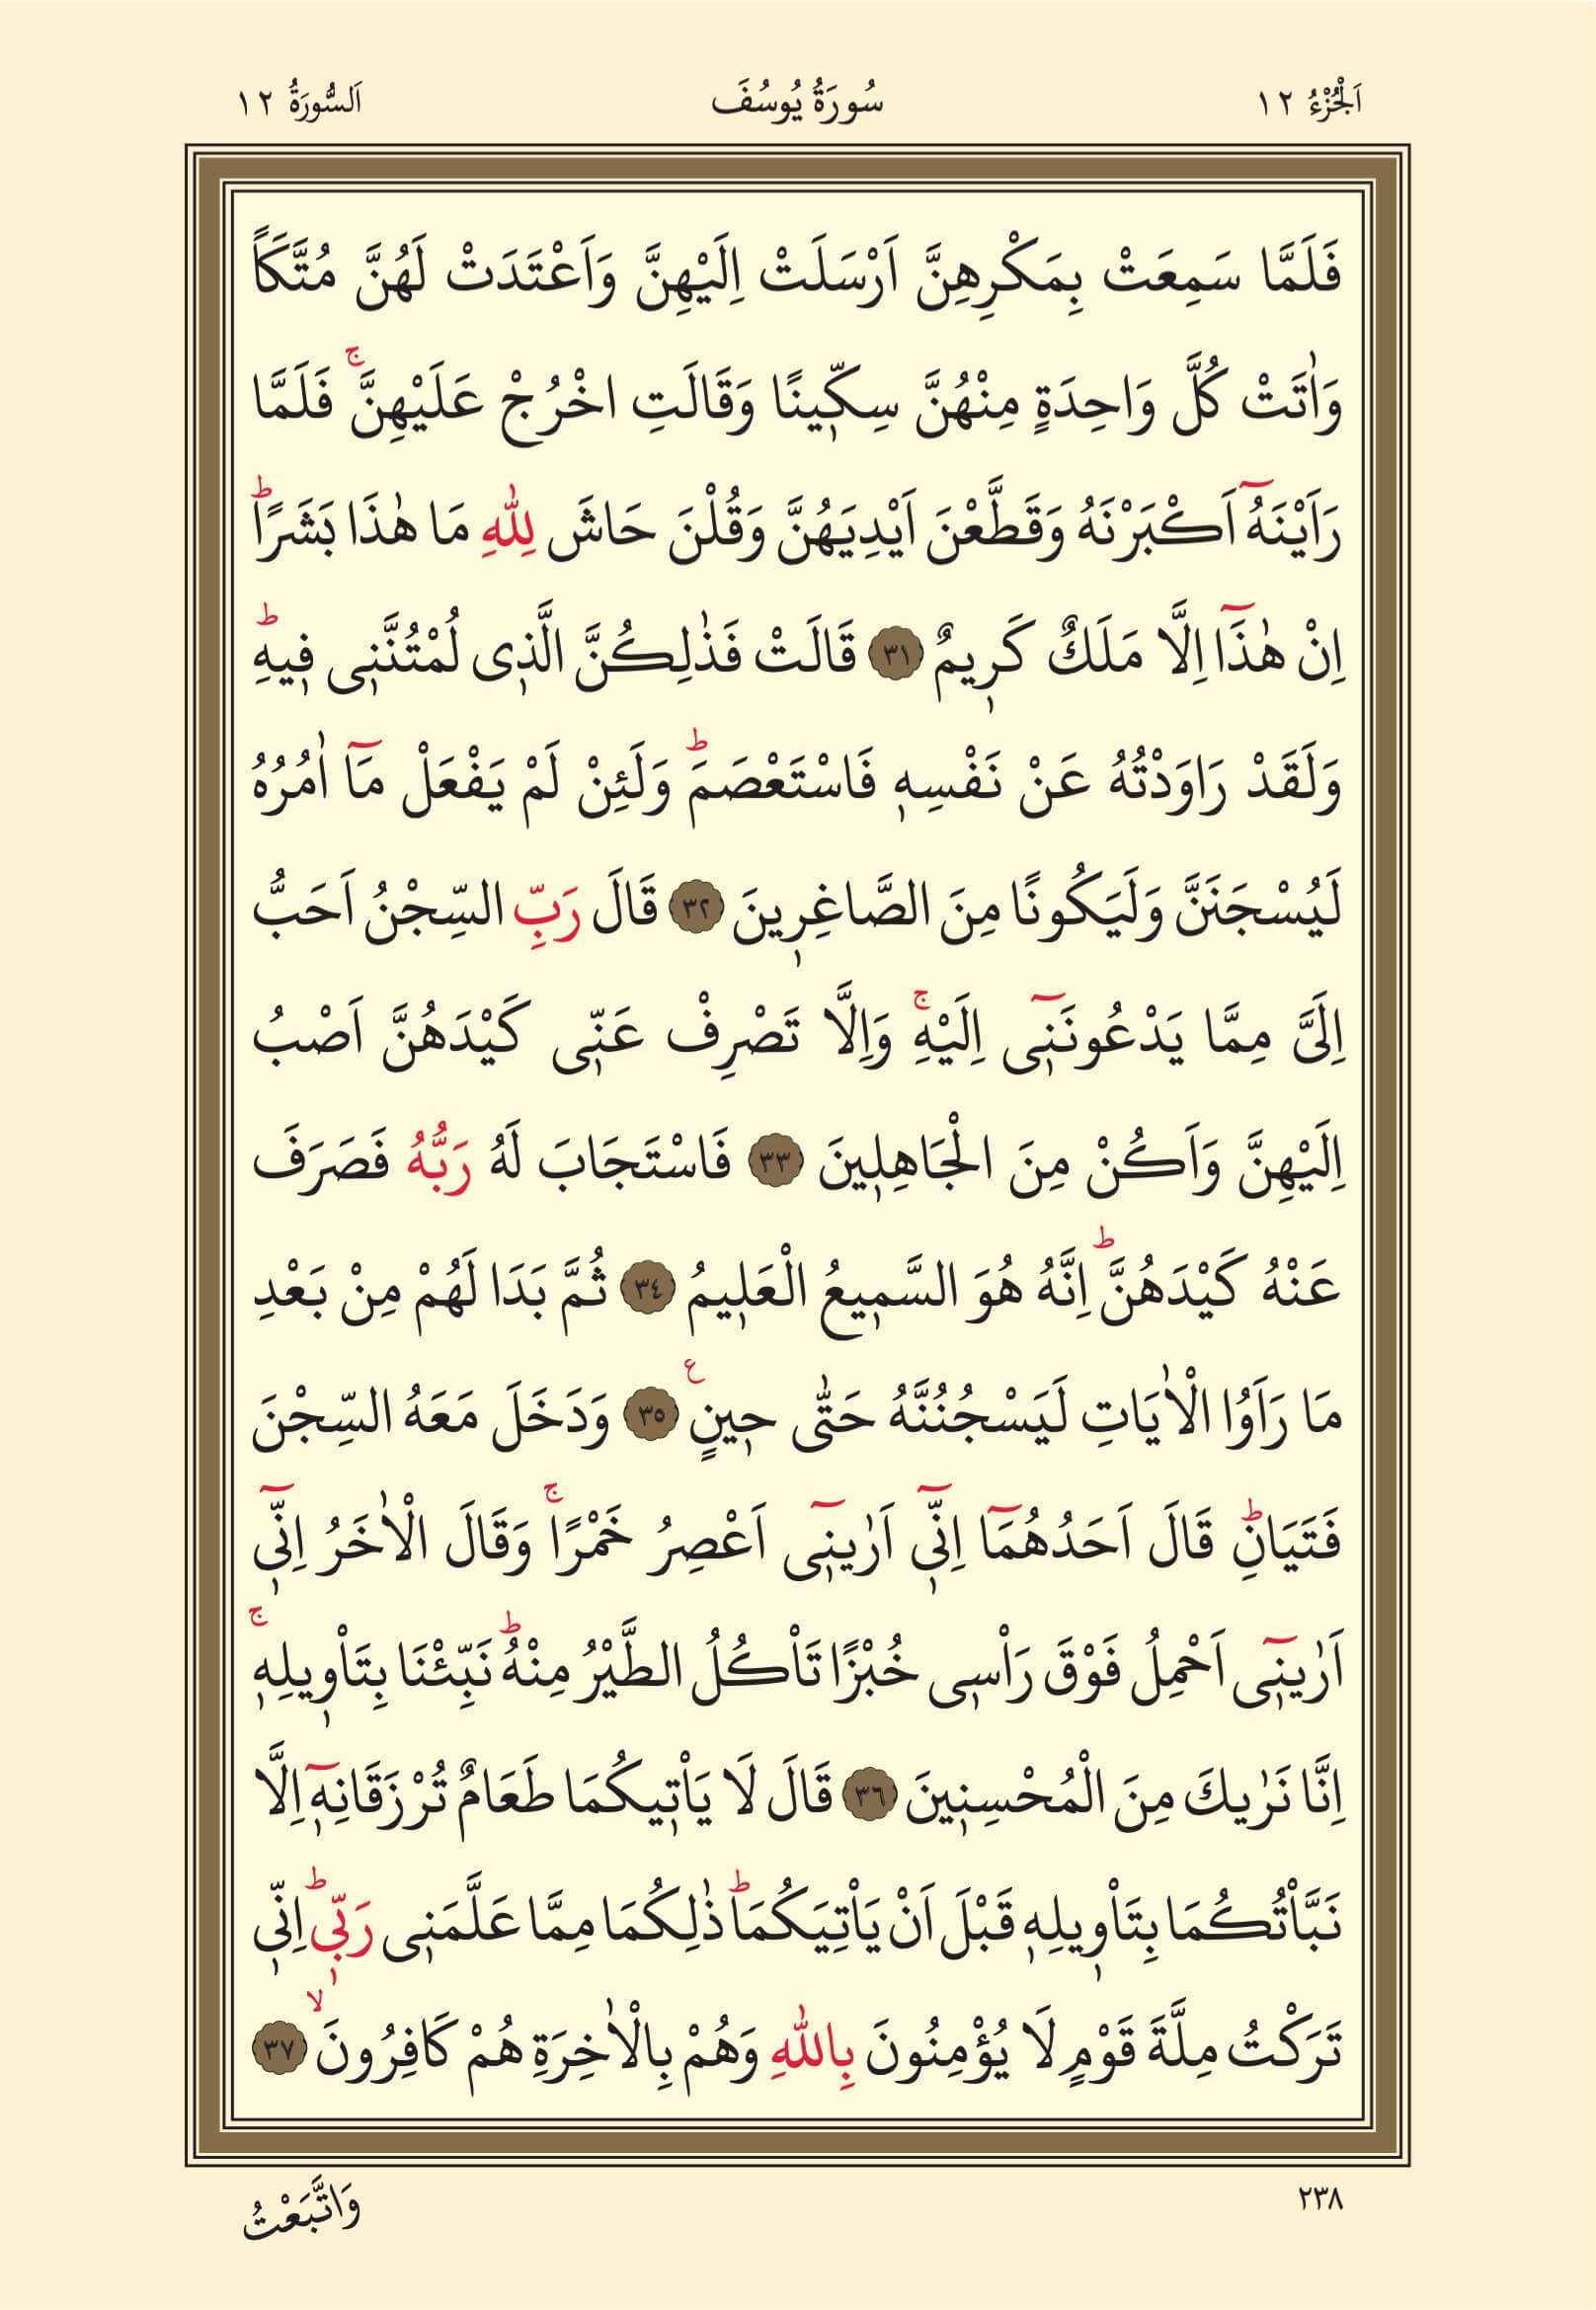 اَلْجُزْءُ ١٢ سُورَةُ يُوسُفَ اَلسُّورَةُ ١٢
فَلَمَّا سَمِعَتْ بِمَكْرِهِنَّ اَرْسَلَتْ اِلَيْهِنَّ وَاَعْتَدَتْ لَهُنَّ مُتَّكَاً
وَاٰتَتْ كُلَّ وَاحِدَةٍ مِنْهُنَّ سِكّ۪ينًا وَقَالَتِ اخْرُجْ عَلَيْهِنَّۚ فَلَمَّا
رَاَيْنَهُٓ اَكْبَرْنَهُ وَقَطَّعْنَ اَيْدِيَهُنَّ وَقُلْنَ حَاشَ لِلّٰهِ مَا هٰذَا بَشَرًاۜ
اِنْ هٰذَٓا اِلَّا مَلَكٌ كَر۪يمٌ ٣١ قَالَتْ فَذٰلِكُنَّ الَّذ۪ى لُمْتُنَّن۪ى ف۪يهِۜ
وَلَقَدْ رَاوَدْتُهُ عَنْ نَفْسِه۪ فَاسْتَعْصَمَۜ وَلَئِنْ لَمْ يَفْعَلْ مَٓا اٰمُرُهُ
لَيُسْجَنَنَّ وَلَيَكُونًا مِنَ الصَّاغِر۪ينَ ٣٢ قَالَ رَبِّ السِّجْنُ اَحَبُّ
اِلَىَّ مِمَّا يَدْعُونَن۪ٓى اِلَيْهِۚ وَاِلَّا تَصْرِفْ عَنّ۪ى كَيْدَهُنَّ اَصْبُ
اِلَيْهِنَّ وَاَكُنْ مِنَ الْجَاهِل۪ينَ ٣٣ فَاسْتَجَابَ لَهُ رَبُّهُ فَصَرَفَ
عَنْهُ كَيْدَهُنَّۜ اِنَّهُ هُوَ السَّم۪يعُ الْعَل۪يمُ ٣٤ ثُمَّ بَدَا لَهُمْ مِنْ بَعْدِ
مَا رَاَوُا الْاٰيَاتِ لَيَسْجُنُنَّهُ حَتّٰى ح۪ينٍ ع ٣٥ وَدَخَلَ مَعَهُ السِّجْنَ
فَتَيَانِۜ قَالَ اَحَدُهُمَٓا اِنّ۪ٓى اَرٰين۪ٓى اَعْصِرُ خَمْرًاۚ وَقَالَ الْاٰخَرُ اِنّ۪ٓى
اَرٰين۪ٓى اَحْمِلُ فَوْقَ رَاْس۪ى خُبْزًا تَاْكُلُ الطَّيْرُ مِنْهُۜ نَبِّئْنَا بِتَاْو۪يلِه۪ۚ
اِنَّا نَرٰيكَ مِنَ الْمُحْسِن۪ينَ ٣٦ قَالَ لَا يَاْت۪يكُمَا طَعَامٌ تُرْزَقَانِه۪ٓ اِلَّا
نَبَّاْتُكُمَا بِتَاْو۪يلِه۪ قَبْلَ اَنْ يَاْتِيَكُمَاۜ ذٰلِكُمَا مِمَّا عَلَّمَن۪ى رَبّ۪ىۜ اِنّ۪ى
تَرَكْتُ مِلَّةَ قَوْمٍ لَا يُؤْمِنُونَ بِاللّٰهِ وَهُمْ بِالْاٰخِرَةِ هُمْ كَافِرُونَۙ ٣٧
٢٣٨ وَاتَّبَعْتُ